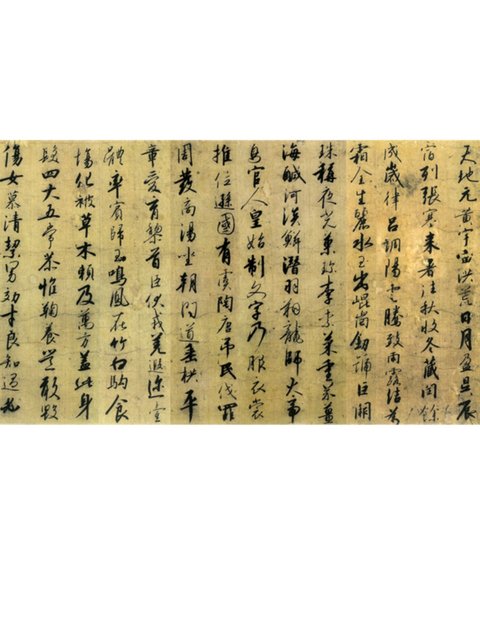 天地元黄宇宙洪荒日月盈昃辰
宿列張寒来暑往秋收冬藏閏餘
成歲律呂調陽雲騰致雨露結為
霜金生麗水玉出崐崗劒號巨闕
珠稱夜光菓珍李柰菜重芥薑
海鹹河淡鱗潛羽翔龍師火帝
鳥官人皇始制文字乃服衣裳
推位遜國有虞陶唐吊民伐罪
周發商湯坐朝問道垂拱平
章愛育黎首臣伏戎羌遐迩壹
體率賓歸王鳴鳳在竹白駒食
場化被草木賴及萬方蓋此身
髮四大五常恭惟鞠養豈敢毀
傷女慕清潔男効才良知過必